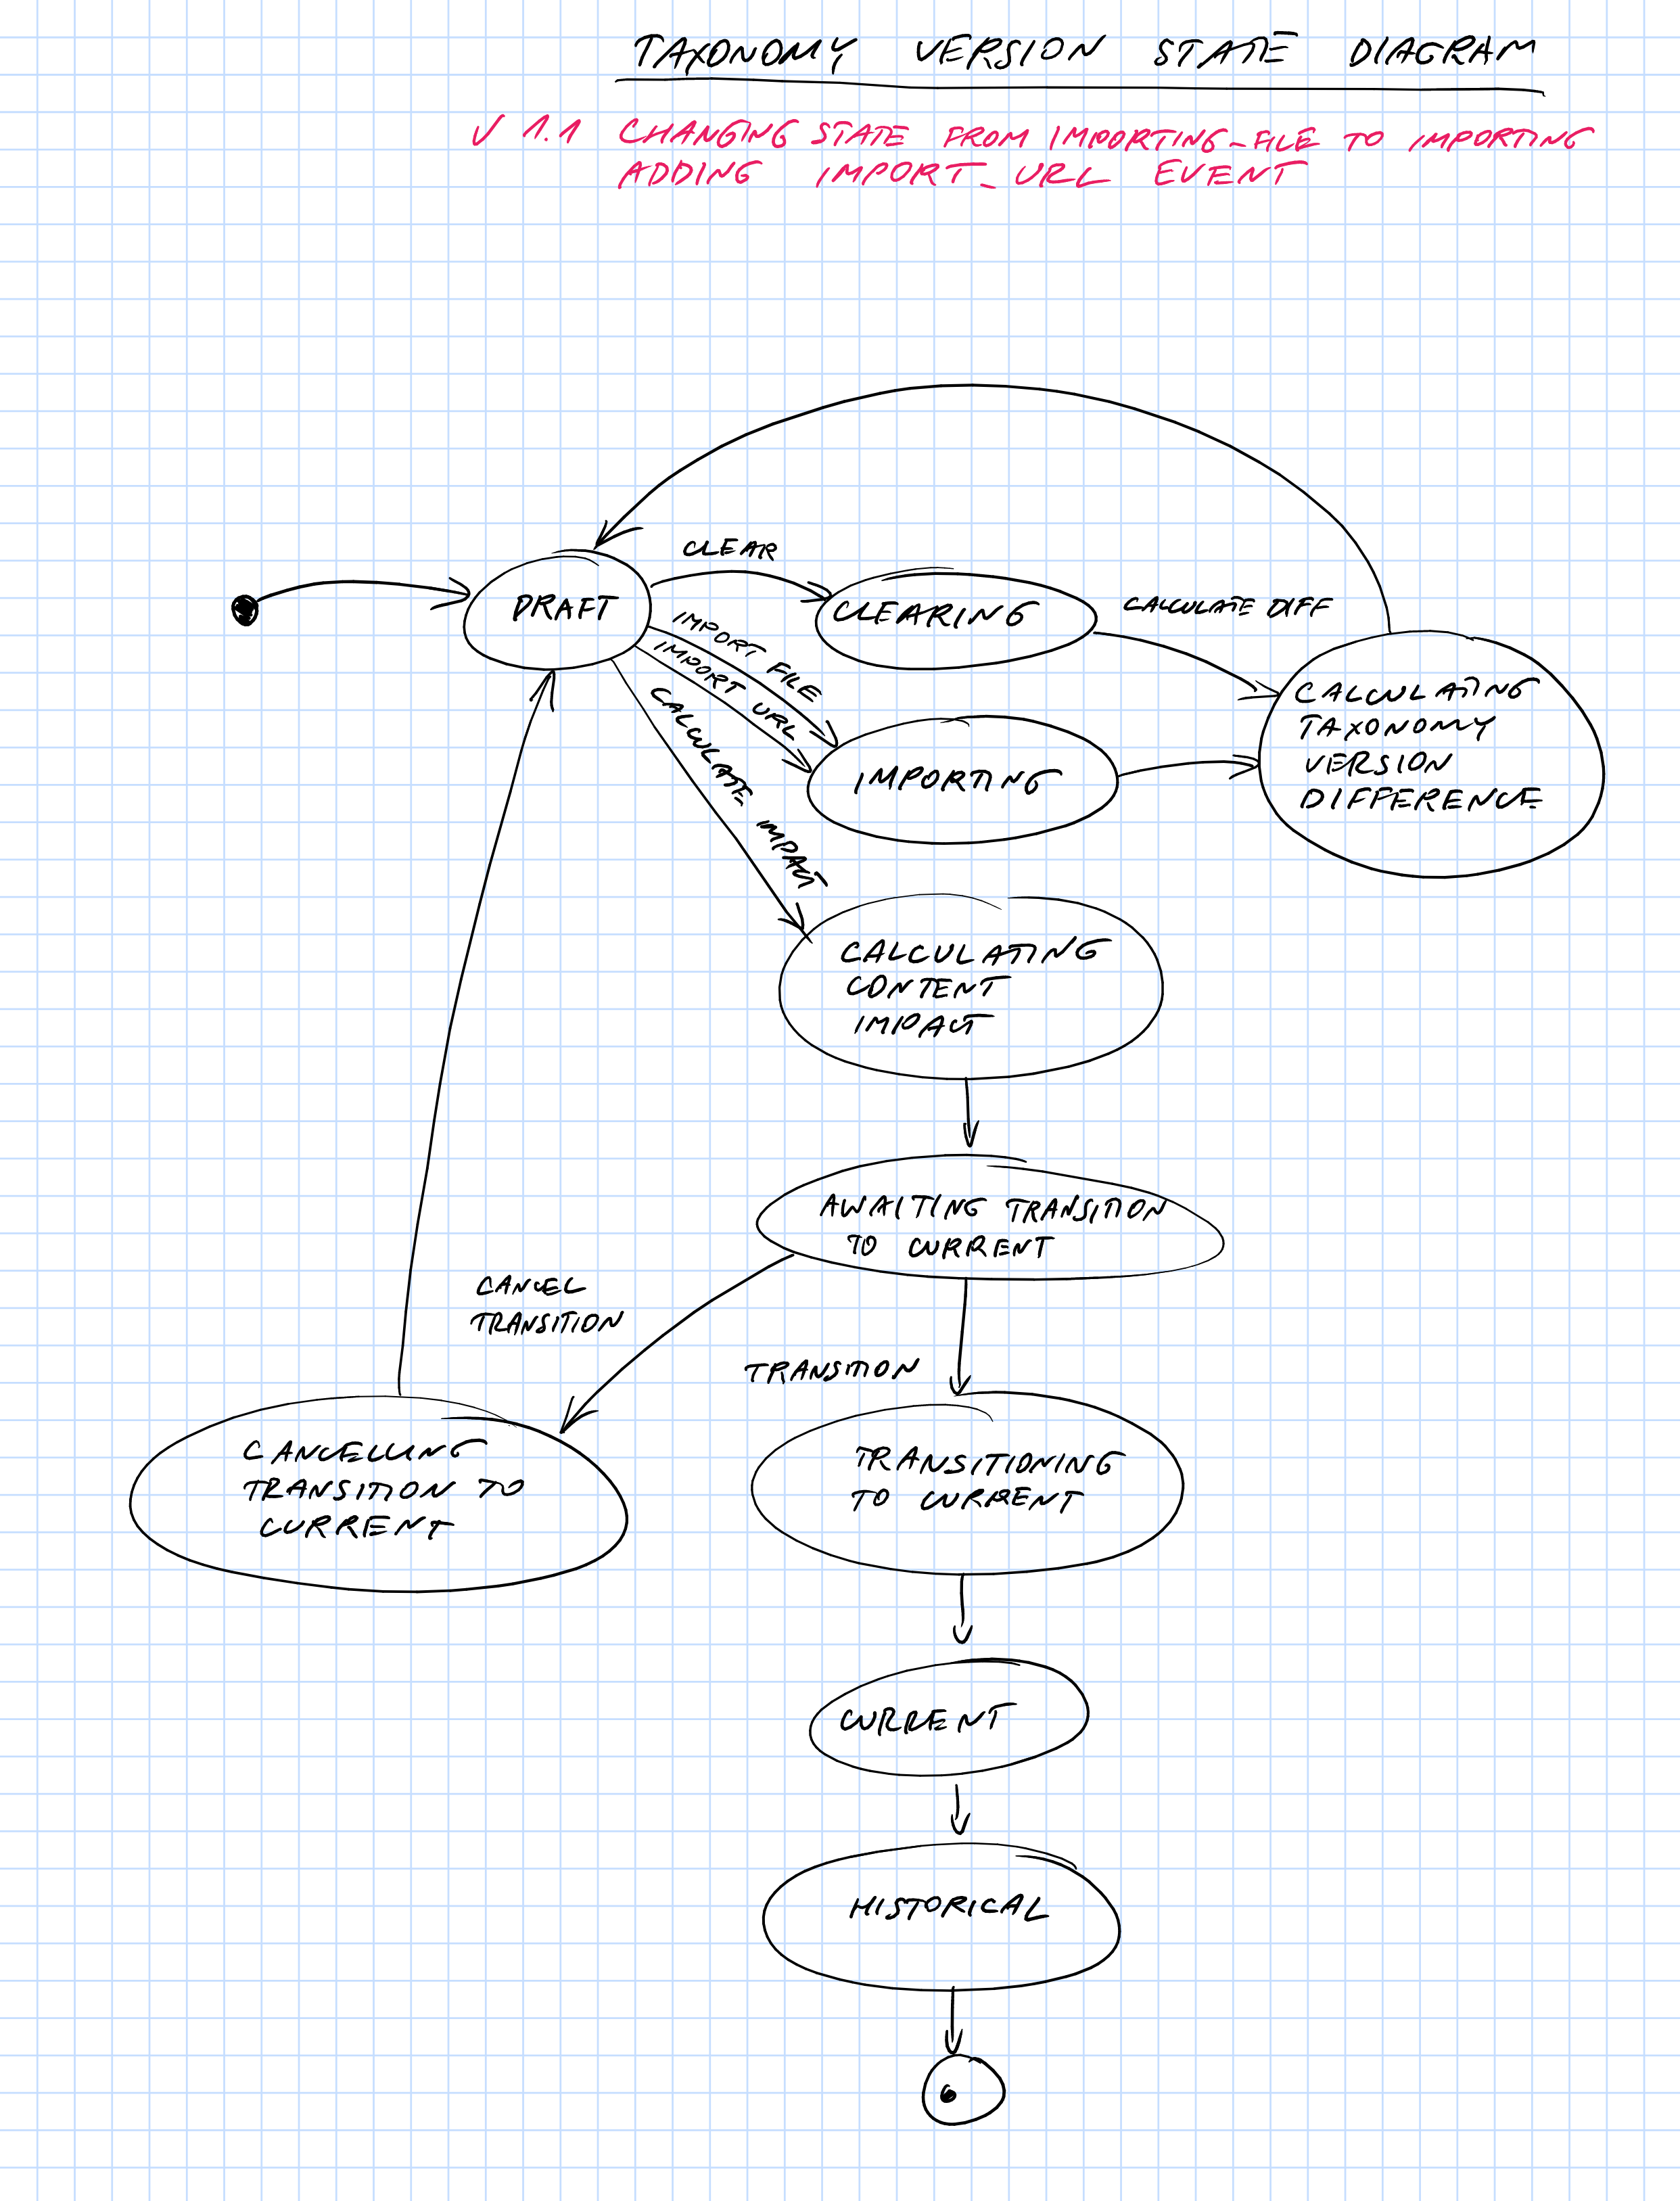 TAXONOMY VERSION STATE DIAGRAM
V 1.1 CHANGING STATE FROM IMPORTING_FILE TO IMPORTING
ADDING IMPORT_URL EVENT
CLEAR
DRAFT
CLEARING
CALCULATE DIFF
IMPORT FILE
IMPORT URL
CALCULATE IMPACT
CALCULATING
TAXONOMY
VERSION
DIFFERENCE
IMPORTING
CALCULATING
CONTENT
IMPACT
AWAITING TRANSITION
TO CURRENT
CANCEL
TRANSITION
TRANSITION
CANCELLING
TRANSITION TO
CURRENT
TRANSITIONING
TO CURRENT
CURRENT
HISTORICAL